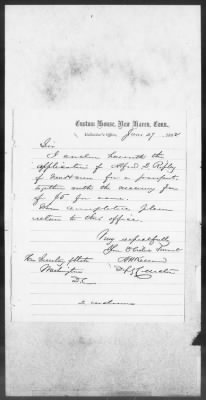 Custom House, New Haven, Conn.
Collector's Office, June 27, 1882
Sir:
I enclose herewith the
application of Alfred L. Ripley
of New Haven for a passport
together with the necessary fee
of $5 for same.
When completed please
return to this office.
Very respectfully
Your Obedient Servant
Hon. Secretary of State
Collector
Washington
D.C.
2 enclosures